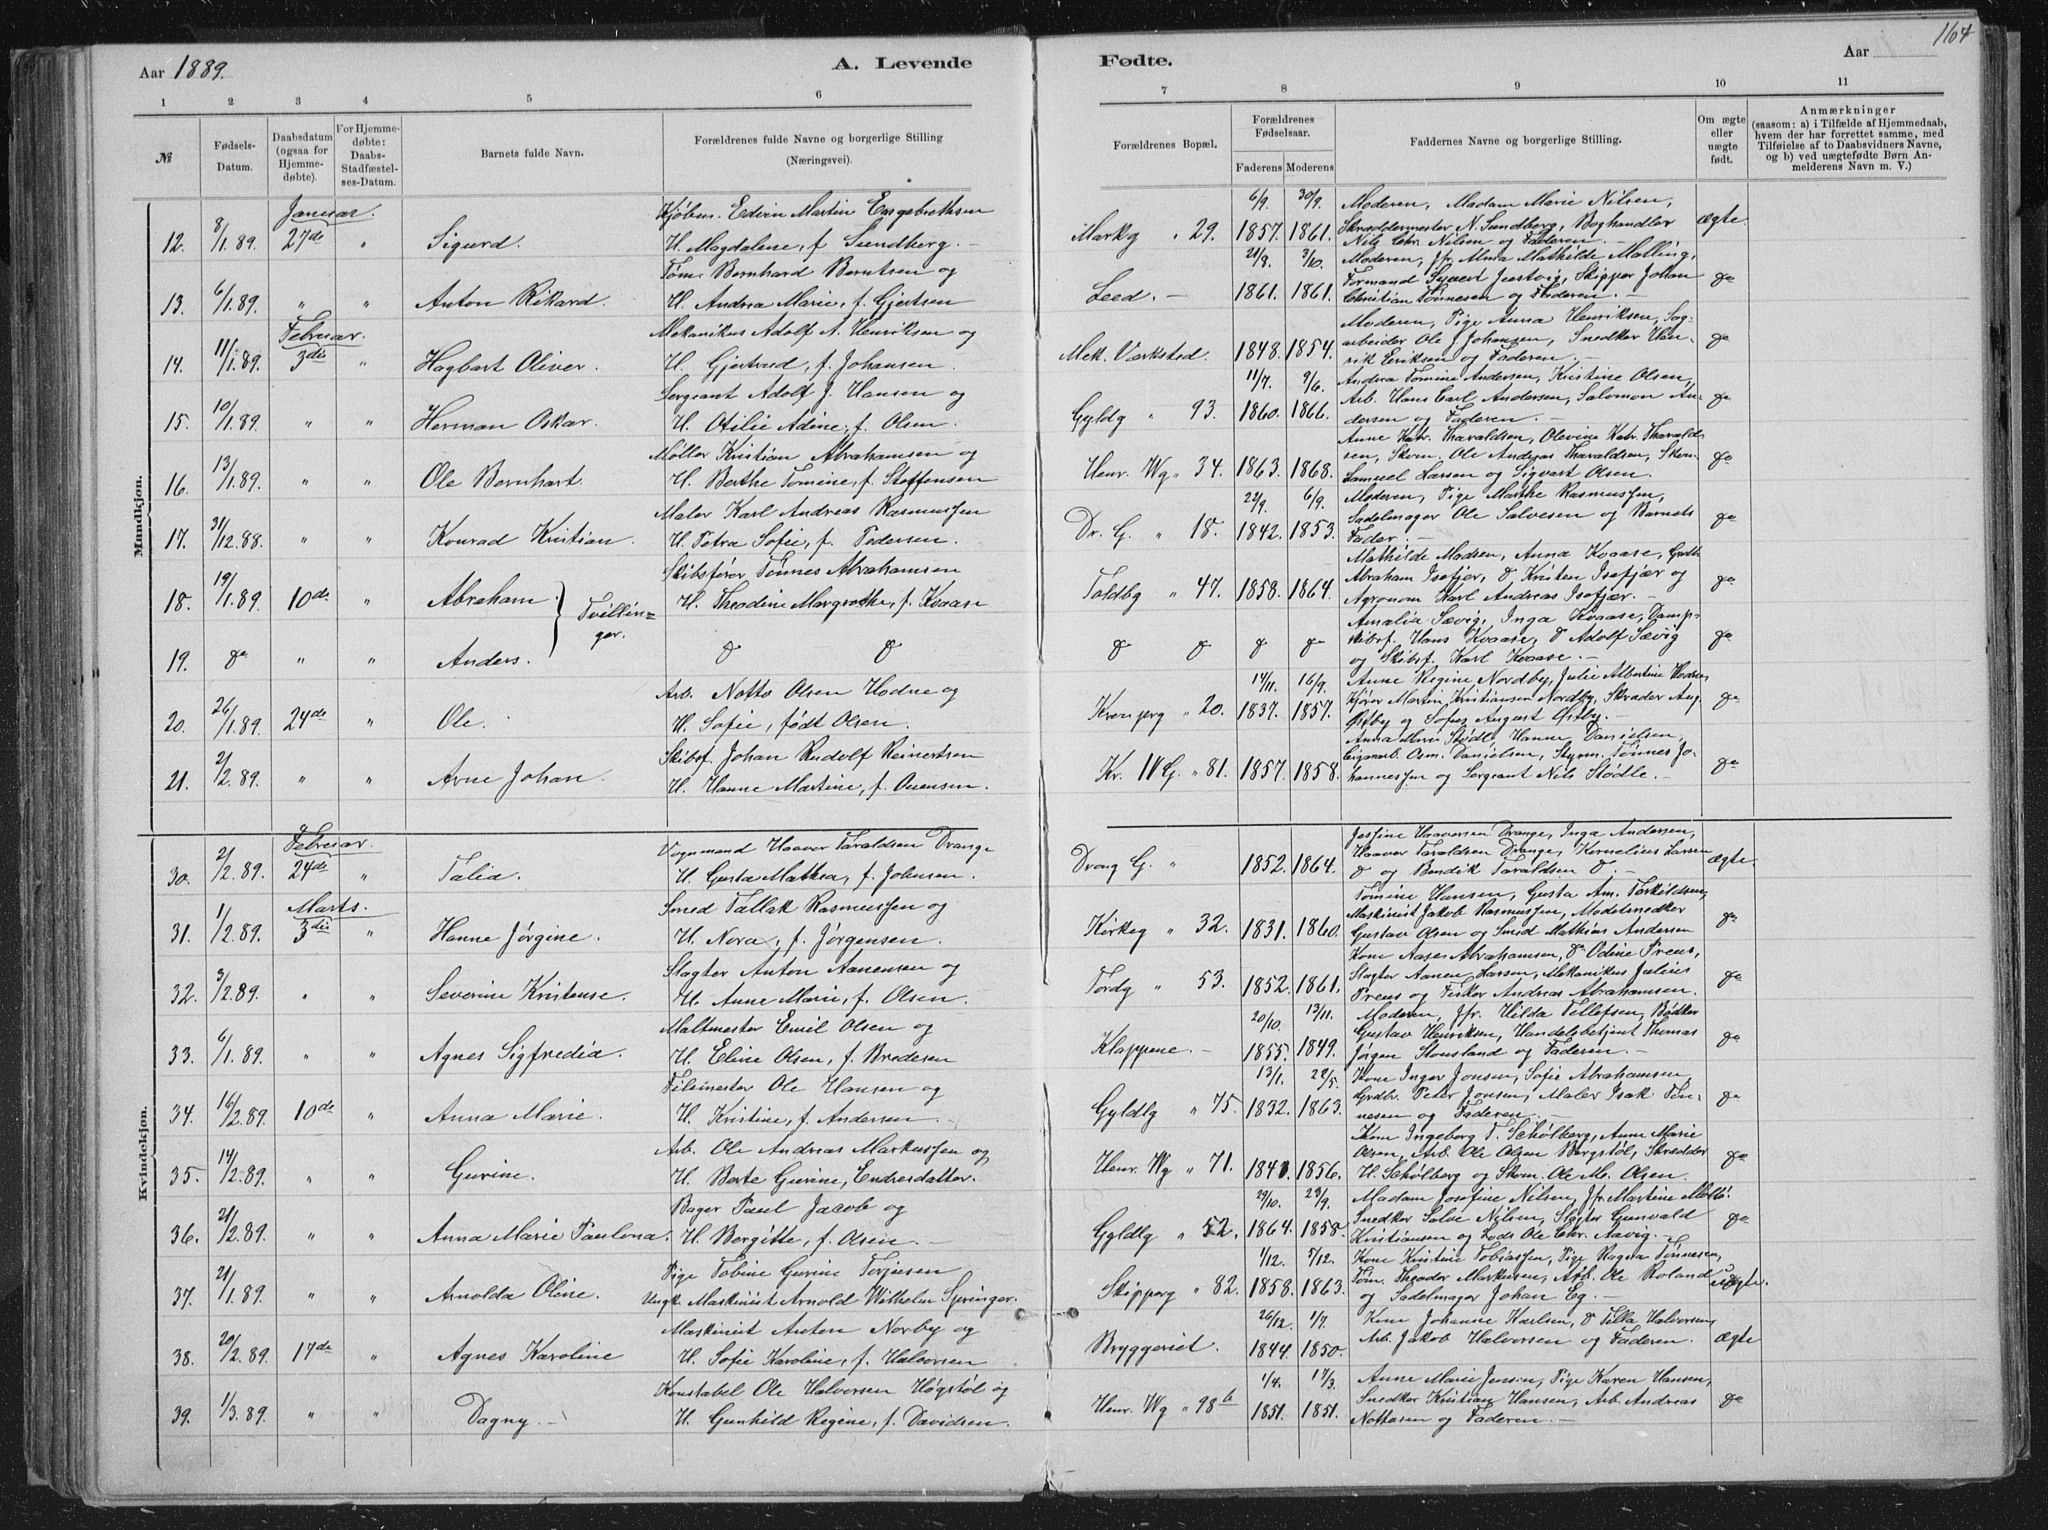 Aar 1889.
A. Levende
Fødte.
Aar
164
1 2 3 4 5 6 7 8 9 10 11
№
Fødsels-Datum.
Daabsdatum (ogsaa for Hjemme-døbte).
For Hjemme-døbte: Daabs-Stadfæstel-ses-Datum.
Barnets fulde Navn.
Forældrenes fulde Navne og borgerlige Stilling
(Næringsvei).
Forældrenes Bopæl.
Forældrenes Fødselsaar.
Faderens Moderens
Faddernes Navne og borgerlige Stilling.
Om ægte eller uægte født.
Anmærkninger
(saasom: a) i Tilfælde af Hjemmedaab,
hvem der har forrettet samme, med
Tilføielse af to Daabsvidners Navne,
og b) ved uægtefødte Børn An-
melderens Navn m. V.)
Mandkjøn.
Januar.
Kjøbm. Edvin Martin Engebrethsen
6/9. 30/9. Moderen, Madam Marie Nilsen,
12. 8/1.89. 27de " Sigurd. H. Magdalene, f. Sundberg. Markg " 29. 1857. 1861. Skræddermester N. Sundberg, Boghandler ægte
Nils Chr. Nilsen og Faderen.
Tøm. Bernhard Berntsen og
21/8. 3/10. Moderen, Jfr. Alma Mathilde Malling,
13. 6/1.89. " " Anton Rikard. H. Andrea Marie, f. Gjertsen Leed. 1861. 1861. Formand Syvert Jerstvig, Skipper Johan do
Christian Tønnesen og Faderen.
Februar.
Mekanikus Adolf A. Henriksen og
Moderen, Pige Anna Henriksen, Sag-
14. 11/1.89. 3die " Hagbart Oliver. H. Gjertrud, f. Johansen. Mek. Værksted. 1848. 1854. arbeider Ole J. Johansen, Snedker Hen- do
rik Eriksen og Faderen.
Sergeant Adolf J. Hansen og
11/7. 9/6. Andrea Tomine Andersen, Kristine Olsen,
15. 10/1.89. " " Herman Oskar. H. Otilie Adine, f. Olsen. Gyldg " 93. 1860. 1866. Arb. Hans Carl Andersen, Salomon An- do
dersen og Faderen.
Møller Kristian Abrahamsen og
Anne Katr. Tharaldsen, Olevine Katr. Tharald-
16. 13/1.89. " " Ole Bernhart. H. Berthe Tomine, f. Steffensen Henr. Wg " 34. 1863. 1868. sen, Skom. Ole Andreas Tharaldsen, Skom. do
Samuel Larsen og Sigvart Olsen.
Maler Karl Andreas Rasmussen
22/9. 6/9. Moderen, Pige Marthe Rasmussen,
17. 31/12.88. " " Konrad Kristian. H. Petra Sofie, f. Pedersen. Dr. G. " 18. 1842. 1853. Sadelmager Ole Salvesen og Barnets do
Fader.
Skibsfører Tønnes Abrahamsen
Mathilde Madsen, Anna Kvaase, Grdb.
18. 19/1.89. 10de " Abraham. } Tvillin- H. Theodine Margrethe, f. Kvaase Toldbg " 47. 1858. 1864. Abraham Isefjær, do Kristen Isefjær og do
ger.
Agronom Karl Andreas Isefjær.
Amalia Sævig, Inga Kvaase, Damp-
19. do " " Anders. do do do do do do skibsf. Hans Kvaase, do Adolf Sævig do
og Skibsf. Karl Kvaase.
Arb. Notto Olsen Hodne og
14/11. 16/9. Anne Regine Nordby, Julie Albertine
20. 26/1.89. 24de " Ole. H. Sofie, født Olsen. Kronprg " 20. 1837. 1857. Kjører Martin Kristiansen Nordby, Skræder Aug. do
Østby og Sofus August Østby.
Skibsf. Johan Rudolf Reinertsen
Anna Marie Stødle, Hanne Danielsen,
21. 2/2.89. " " Arne Johan. H. Hanne Martine, f. Ouensen. Kr. IV G. " 81. 1857. 1858. Cigararb. Osm. Danielsen, Styrm. Tønnes Jo- do
hannessen og Sergeant Nils Stødle.
Kvindekjøn.
Februar.
Vognmand Haaver Taraldsen Drange
Jesfine Haaversen Drange, Inga Andersen,
30. 2/2.89. 24de " Talia. H. Gusta Mathea, f. Johnsen. Drong G. " 1852. 1864. Haaver Taraldsen Drange, Kornelius Larsen ægte
do og Bendik Taraldsen do.
Marts.
Smed Tallak Rasmussen og
Tomine Hansen, Gusta Am. Torkildsen,
31. 1/2.89. 3die " Hanne Jørgine. H. Nora, f. Jørgensen. Kirkeg " 32. 1831. 1860. Maskinist Jakob Rasmussen, Modelsnedker do
Gustav Olsen og Smed Mathias Andersen
Slagter Anton Aanensen og
Kone Aase Abrahamsen, do Odine Preus,
32. 3/2.89. " " Severine Kristense. H. Anne Marie, f. Olsen. Tordg " 53. 1852. 1861. Slagter Aanen Larsen, Mekanikus Julius do
Preus og Fisker Andreas Abrahamsen.
Maltmester Emil Olsen og
20/10. 13/11. Moderen, Jfr. Hilda Tellefsen, Bødker
33. 6/1.89. " " Agnes Sigfredia. H. Eline Olsen, f. Bredesen Klappene. 1855. 1849. Gustav Henriksen, Handelsbetjent Thomas do
Jørgen Stousland og Faderen.
Feiemester Ole Hansen og
13/1. 22/5. Kone Inger Jonsen, Sofie Abrahamsen,
34. 16/2.89. 10de " Anna Marie. H. Kristine, f. Andersen. Gyldlg " 75. 1832. 1863. Grdbr. Peter Jonsen, Maler Isak Tøn- do
nesen og Faderen.
Arb. Ole Andreas Markussen og
Kone Ingeborg T. Schølberg, Anne Marie
35. 14/2.89. " " Gurine. H. Berte Gurine, Endresdatter. Henr. Wg " 71. 1856. Olsen, Arb. Ole Olsen Bergstøl, Skredder do
H. Schølberg og Skom. Ole M. Olsen.
Bager Paul Jacob og
29/10. 23/9. Madam Josefine Nilsen, Jfr. Martine
36. 21/2.89. " " Anna Marie Paulona. H. Bergitte, f. Olsen. Gyldlg " 52. 1864. 1858. Snedker Salve Nilsen, Slagter Gunvald do
Kristiansen og Lods Ole Chr. Aavig.
Pige Tobine Gurine Terjesen
1/12. 7/12. Kone Kristine Tobiassen, Pige Ragna Tønnesen,
37. 21/1.89. " " Arnolda Oline. Ungk. Maskinist Arnold Wilhelm Springer. Skipperg " 82. 1858. 1863. Tøm. Theodor Markusen, Arb. Ole Roland uægte.
og Sadelmager Johan Eg.
Maskinist Anton Norby og
26/12. 1/7. Kone Johanne Karlsen, do Tilla Halvorsen,
38. 20/2.89. 17de " Agnes Karoline H. Sofie Karoline, f. Halvorsen Bryggeriet. 1844. 1850. Arb. Jakob Halvorsen og Faderen. ægte
Konstabel Ole Halvorsen Høgstøl og
1/4. 17/3. Anne Marie Jensen, Pige Karen Hansen,
39. 1/3.89. " " Dagny. H. Gunhild Regine, f. Davidsen. Henr. Wg " 98b 1851. 1851. Snedker Kristian Hansen, Arb. Andreas do
Nottosen og Faderen.